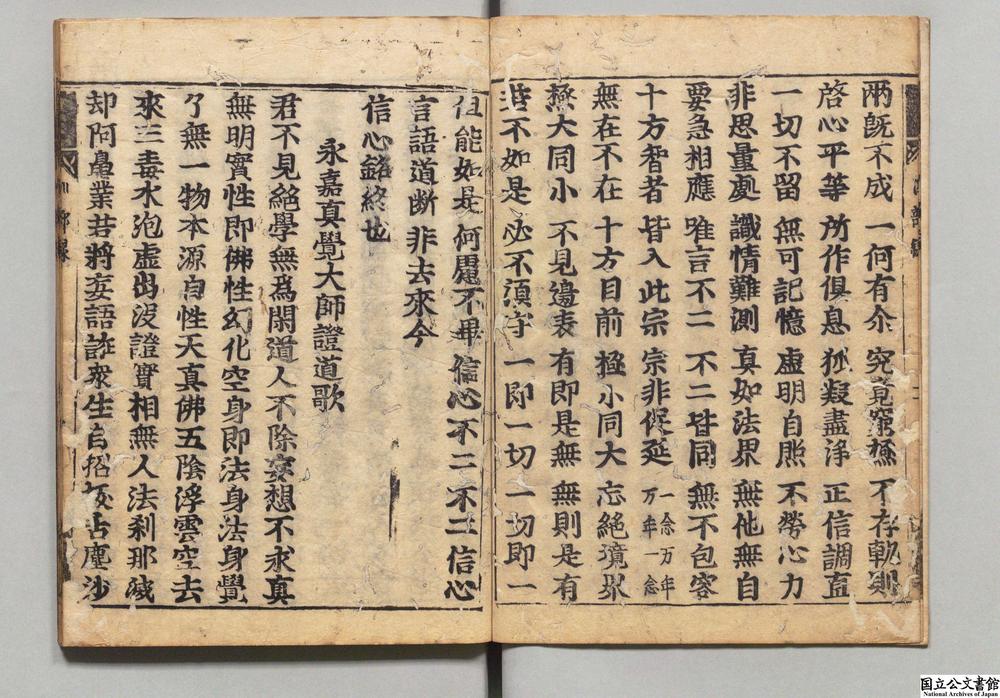 兩旣不成 一何有尒 究竟窮𣞙 不存軌則
啓心平等 所作俱息 狐疑盡淨 正信調直
一切不留 無可記憶 虛明自照 不勞心力
非思量處 識情難測 真如法界 無他無自
要急相應 唯言不二 不二皆同 無不包容
十方智者 皆入此宗 宗非促延 一念万年 万年一念
無在不在 十方目前 極小同大 忘絕境界
大同小 不見邊表 有即是無 無則是有
若不如是 必不須守 一即一切 一切即一
但能如是 何慮不畢 信心不二 不二信心
言語道斷 非去來今
信心銘終也
永嘉真覺大師證道歌
君不見絕學無爲閑道人不除妄想不求真
無明實性即佛性幻化空身即法身法身覺
了無一物本源自性天真佛五陰浮雲空去
來三毒水泡虛出沒證實相無人法刹那滅
却阿鼻業若將妄語誑衆生自招拔舌塵沙
国立公文書館
National Archives of Japan